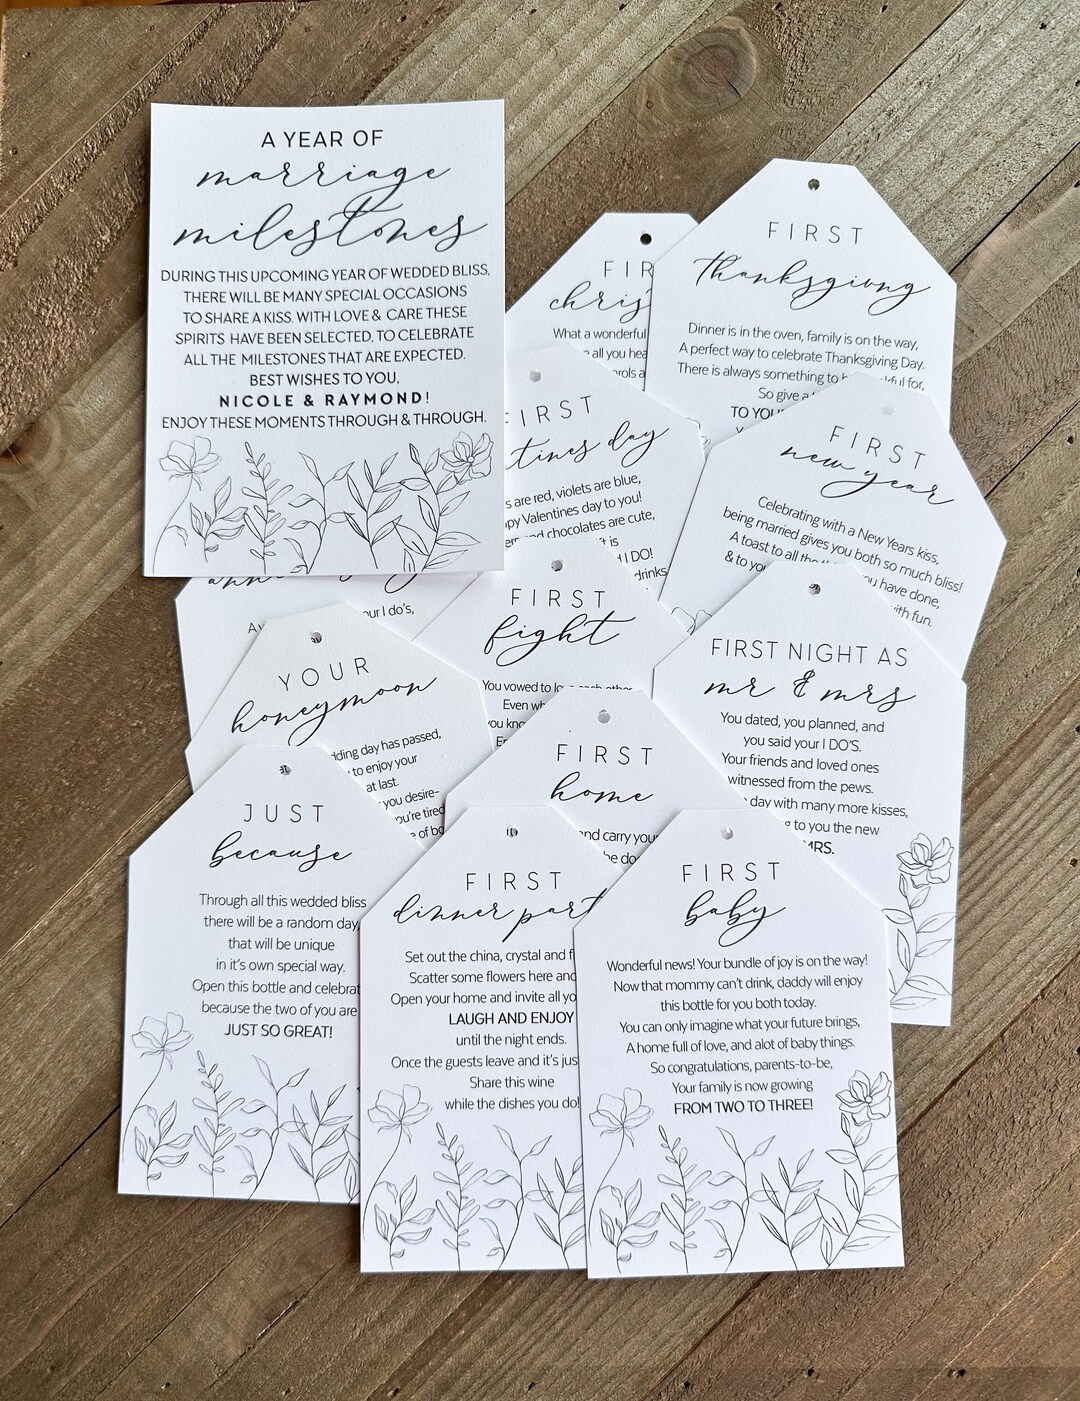 A YEAR OF
marriage
milestones
DURING THIS UPCOMING YEAR OF WEDDED BLISS,
THERE WILL BE MANY SPECIAL OCCASIONS
TO SHARE A KISS. WITH LOVE & CARE THESE
SPIRITS HAVE BEEN SELECTED, TO CELEBRATE
ALL THE MILESTONES THAT ARE EXPECTED.
BEST WISHES TO YOU,
NICOLE & RAYMOND!
ENJOY THESE MOMENTS THROUGH & THROUGH.
What a wonderful
all you
FIRST
thanksgiving
Dinner is in the oven, family is on the way,
A perfect way to celebrate Thanksgiving Day.
There is always something to
So give a
TO
FIRST
day
are red, violets are blue,
Valentines day to you!
chocolates are cute,
is
I DO!
drinks
FIRST
new year
Celebrating with a New Years kiss,
being married gives you both so much bliss!
A toast to all
have done,
& to
with fun.
I do's,
FIRST
fight
You vowed to
Even
you
FIRST NIGHT AS
mr & mrs
You dated, you planned, and
you said your I DO'S.
Your friends and loved ones
witnessed from the pews.
day with many more kisses,
to you the new
MRS.
YOUR
honeymoon
day has passed,
to enjoy your
at last.
you desire-
you're tired
of
FIRST
home
and carry your
JUST
because
Through all this wedded bliss
there will be a random day,
that will be unique
in it's own special way.
Open this bottle and
because the two of you are
JUST SO GREAT!
FIRST
dinner
Set out the china, crystal and
Scatter some flowers here and
Open your home and invite all
LAUGH AND ENJOY
until the night ends.
Once the guests leave and it's
Share this wine
while the dishes you do!
FIRST
baby
Wonderful news! Your bundle of joy is on the way!
Now that mommy can't drink, daddy will enjoy
this bottle for you both today.
You can only imagine what your future brings,
A home full of love, and alot of baby things.
So congratulations, parents-to-be,
Your family is now growing
FROM TWO TO THREE!